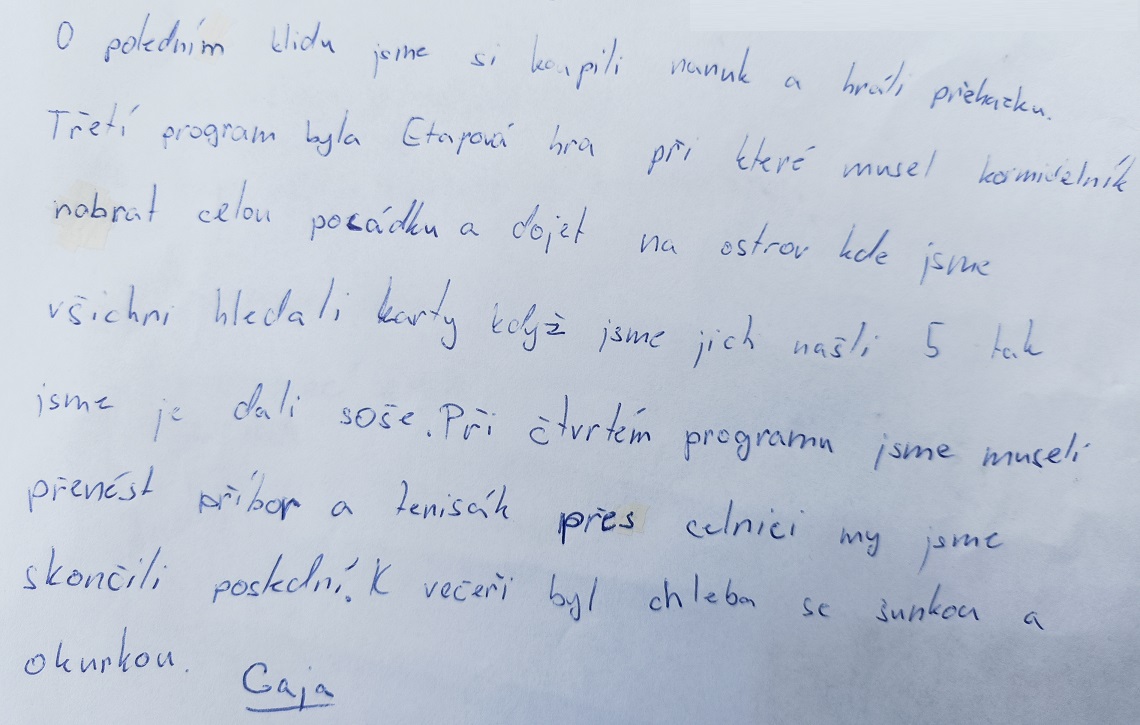 O poledním klidu jsme si koupili nanuk a hráli přehazku.
Třetí program byla Etapová hra při které musel kormidelník
nabrat celou posádku a dojet na ostrov kde jsme
všichni hledali karty když jsme jich našli 5 tak
jsme je dali soše. Při čtvrtém programu jsme museli
přenést příbor a tenisák přes celnici my jsme
skončili poslední. K večeři byl chleba se šunkou a
okurkou.
Gaja